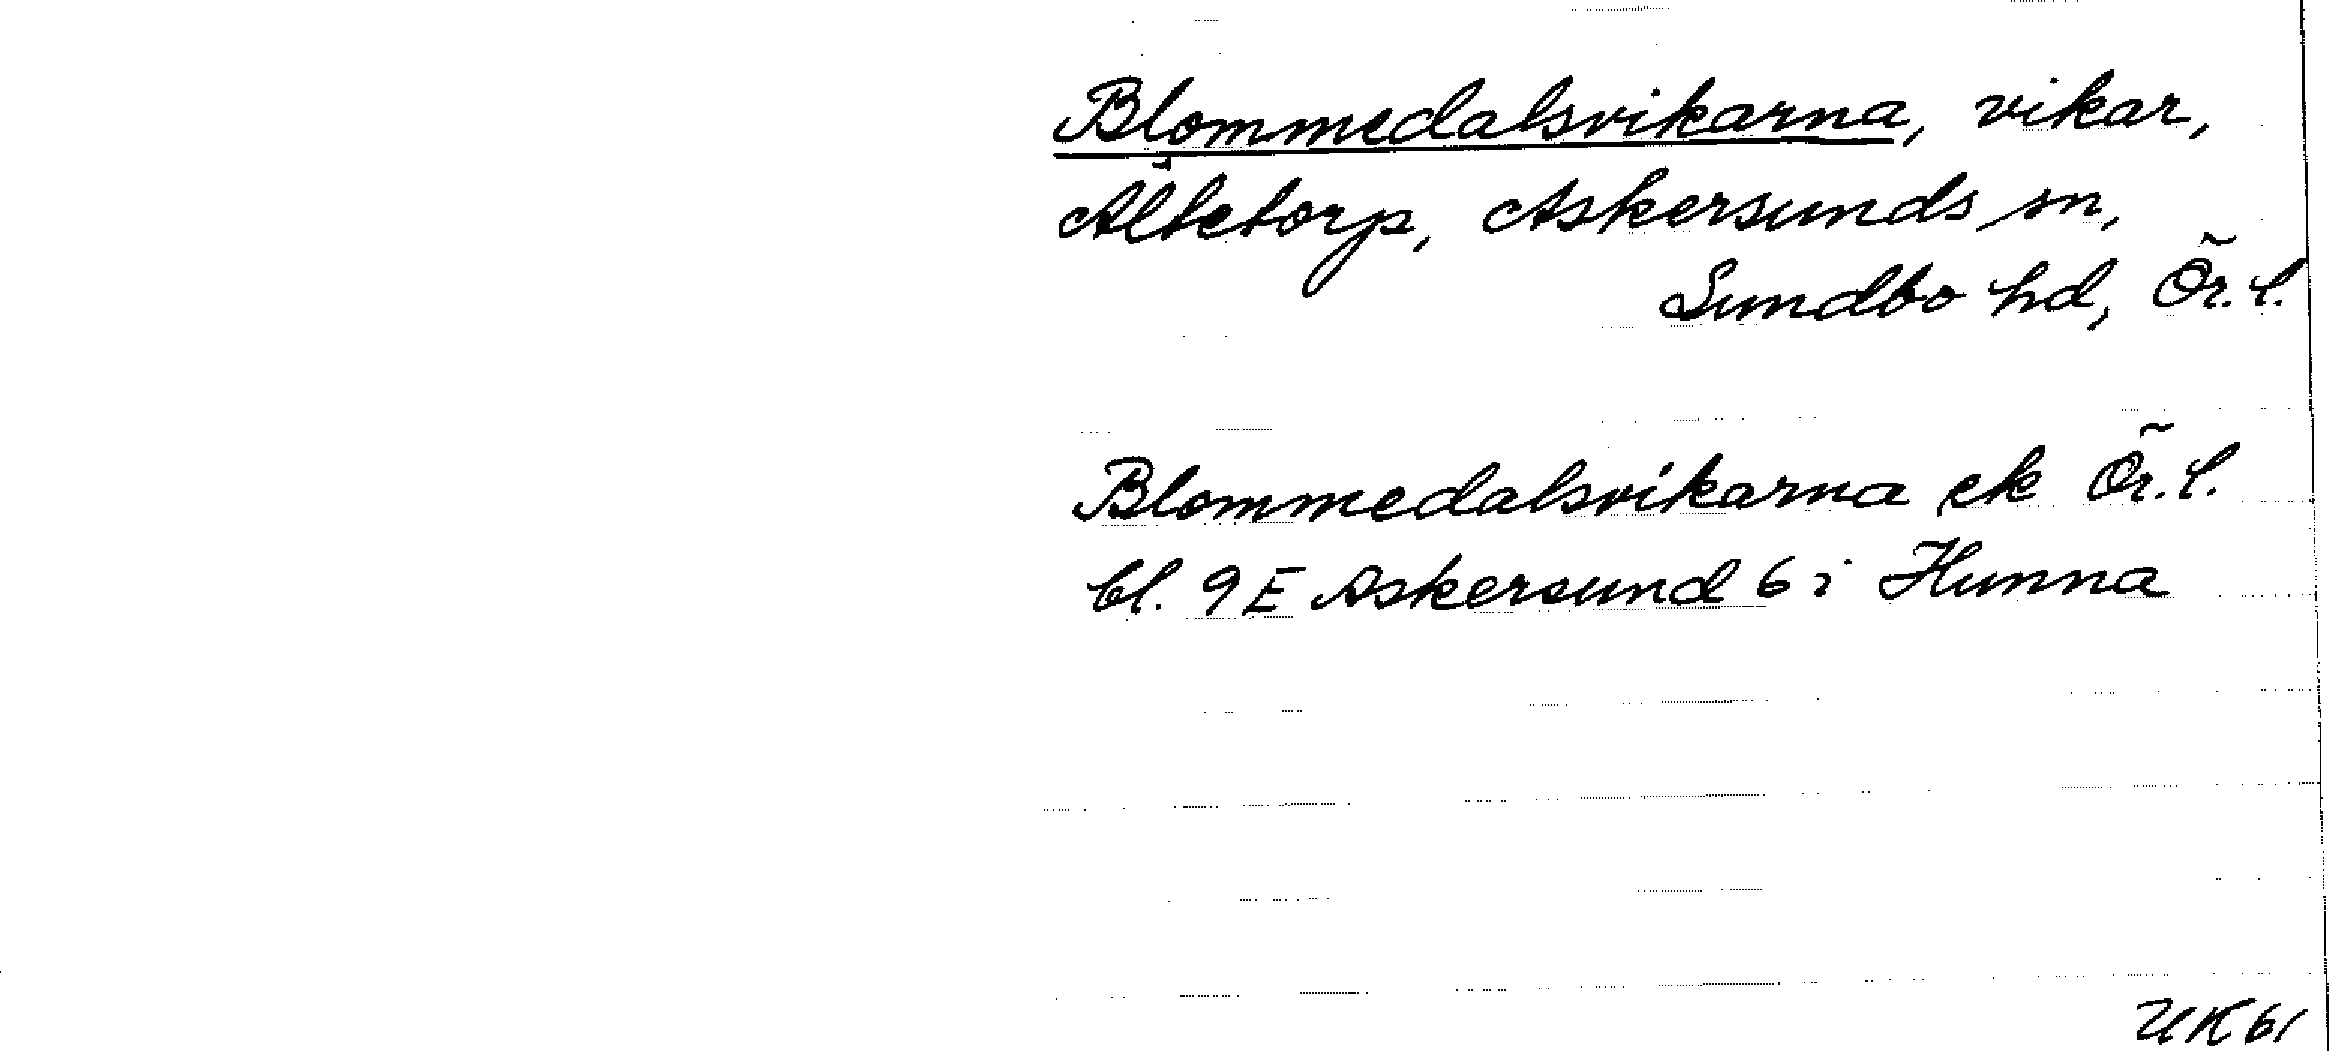 Blommedalsvikarna, vikar,
Åtetorp, Askersunds sn,
Sundbo hd, Ör. l.
Blommedalsvikarna ek Ör. l.
bl. 9E Askersund 6i Hunna
UK 61